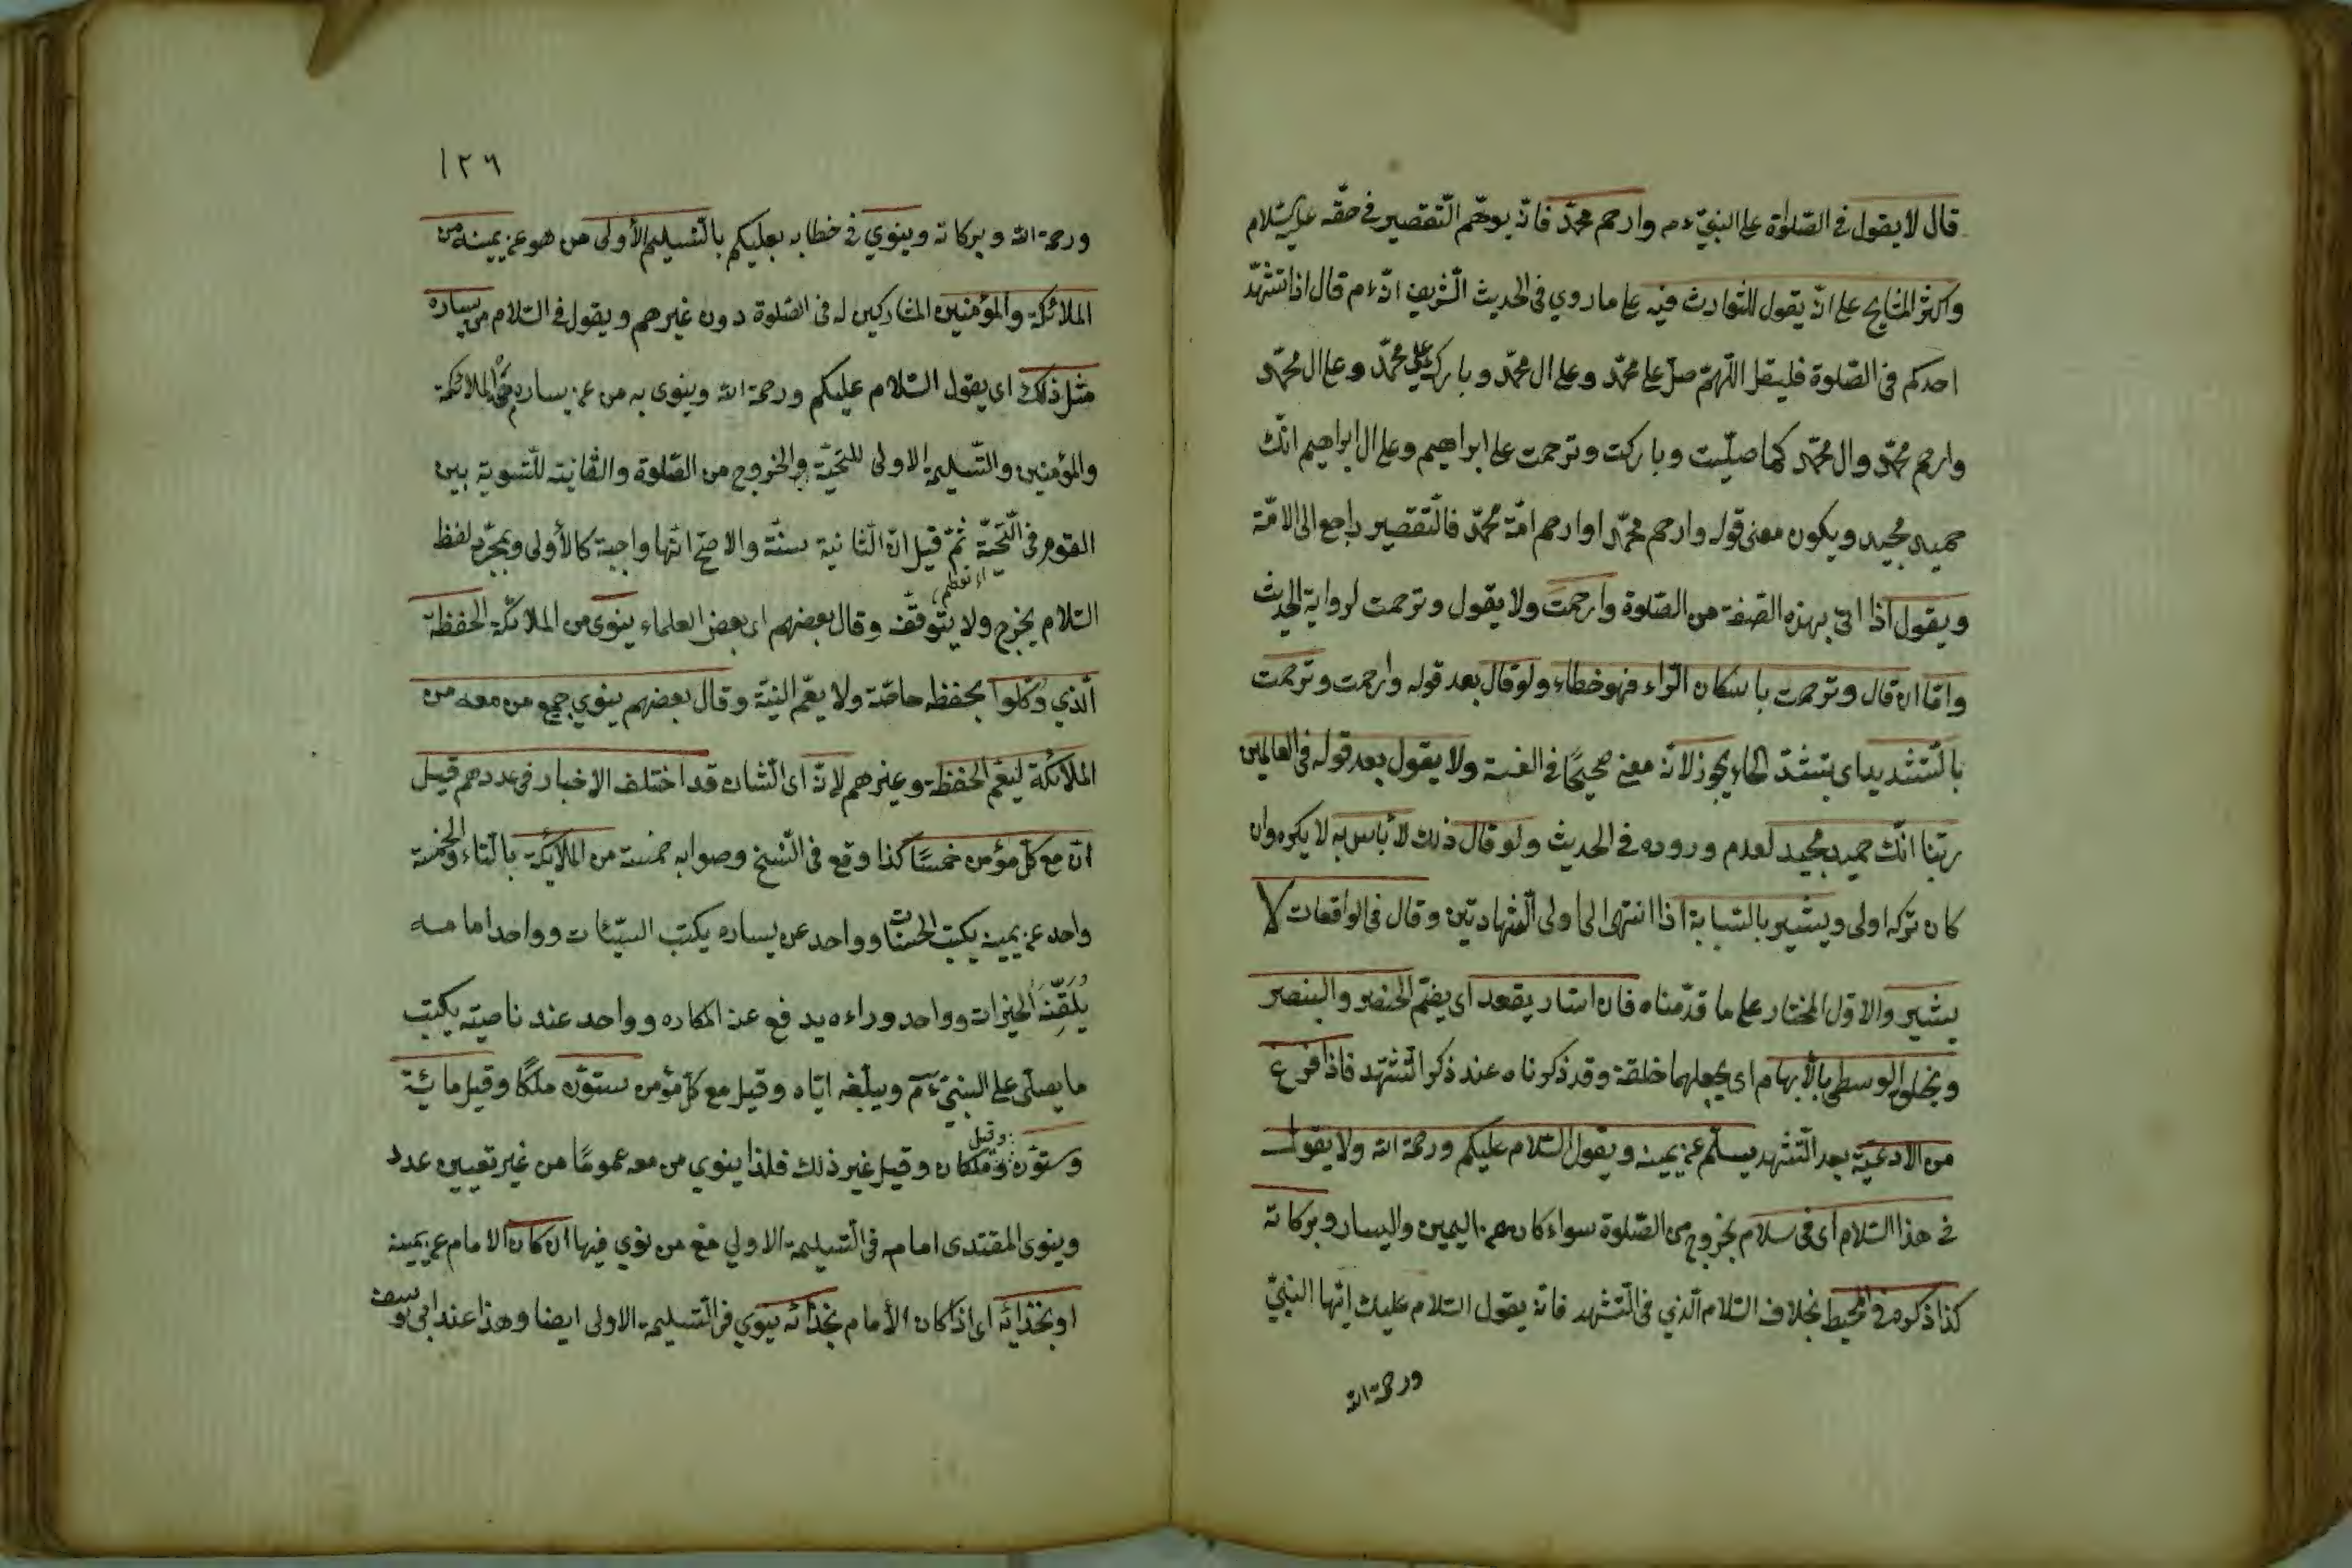 قال لا يقول في الصّلوٰة على النبيّ ءم وارحم محمّدا فانّه يوهّم التّقصير في حقّه عليه السّلام
واكثر المشايخ على انّه يقول للتوارث فيه على ما روي في الحديث الشّريف انّه ءم قال اذا تشهّد
احدكم في الصّلوة فليقل اللّهمّ صلّ على محمّد وعلى ال محمّد وبارك على محمّد وعلى ال محمّد
وارحم محمّد وال محمّد كما صلّيت وباركت وترحمت على ابراهيم وعلى ال ابراهيم انّك
حميد مجيد ويكون معنى قوله وارحم محمّدا وارحم امّة محمّد فالتّقصير راجع الى الامّة
ويقول اذا اتى بهذه الصّفة من الصّلوة وارحمت ولا يقول وترحمت لرواية الحديث
وامّا ان قال وترحمت باسكان الرّاء فهو خطاء ولو قال بعد قوله وارحمت وترحمت
بالتّشديد اى بتشدّد الحاء يجوز لانّه معنى صحيحًا في اللغة ولا يقول بعد قوله في العالمين
ربّنا انّك حميد مجيد لعدم وروده في الحديث ولو قال ذلك لا بأس به لا يكره وان
كان تركه اولى ويشير بالسّبابة اذا انتهى الى اولى الشّهادتين وقال في الواقعات لا
يشير والاوّل المختار على ما قدّمناه فان اشار يعقد اى يضمّ الخنصر والبنصر
ويحلق الوسطى بالأبهام اى يجعلهما حلقة وقد ذكرناه عند ذكر التّشهّد فاذا فرغ
من الادعيّة بعد التّشهد يسلّم عن يمينه ويقول السّلام عليكم ورحمة الله ولا يقول
في هذا السّلام اى في سلام بخروج من الصّلوة سواء كان عن اليمين واليسار وبركاته
كذا ذكره في المحيط بخلاف السّلام الّذي في التّشهد فانّه يقول السّلام عليك ايّها النبيّ
ورحمة الله
١٢٦
ورحمة الله وبركاته وينوي في خطابه بعليكم بالتّسليم الأولى من هو عن يمينه من
الملائكة والمؤمنين المشاركين له في الصّلوة دون غيرهم ويقول في السّلام من يساره
مثل ذلك اى يقول السّلام عليكم ورحمة الله وينوى به من عن يساره من الملائكة
والمؤمنين والتّسليمة الاولى للتحيّة والخروج من الصّلوة والثّانية للتّسوية بين
القوم في التّحيّة ثمّ قيل انّ الثّانية سنّة والاصحّ انّها واجبة كالأولى وبمجرّد لفظ
السّلام يخرج ولا يتوقّف وقال بعضهم اى بعض العلماء ينوى من الملائكة الحفظة
الّذي وُكّلوا بحفظه خاصّة ولا يعمّ النيّة وقال بعضهم ينوي جميع من معه من
الملائكة ليعمّ الحفظة وغيرهم لانّه اى الشّان قد اختلف الاخبار في عددهم قيل
انّ مع كلّ مؤمن خمسًا كذا وقع في النّسخ وصوابه خمسة من الملائكة بالتّاء والخمسة
واحد عن يمينه يكتب الحسنات وواحد عن يساره يكتب السّيّئات وواحد امامه
يلقّنه الخيرات وواحد وراءه يدفع عنه المكاره وواحد عند ناصيته يكتب
ما يصلّى على النبيّ ءم ويبلّغه ايّاه وقيل مع كلّ مؤمن ستوّن ملكًا وقيل مائة
وستوّن وقيل ملكان وقيل غير ذلك فلذا ينوي من معه عمومًا من غير تعيين عدد
وينوى المقتدى امامه في التّسليمة الاولي مع من نوي فيها ان كان الامام عن يمينه
او بحذائه اى اذا كان الأمام بحذائه ينوي في التّسليمة الاولى ايضا وهذا عند ابي يوسف